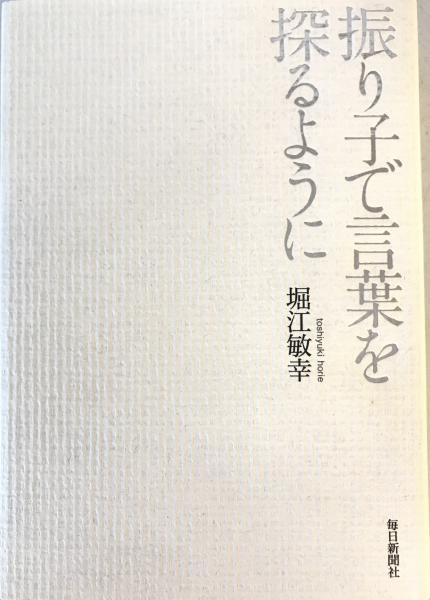 振り子で言葉を
探るように
堀江敏幸
toshiyuki horie
毎日新聞社